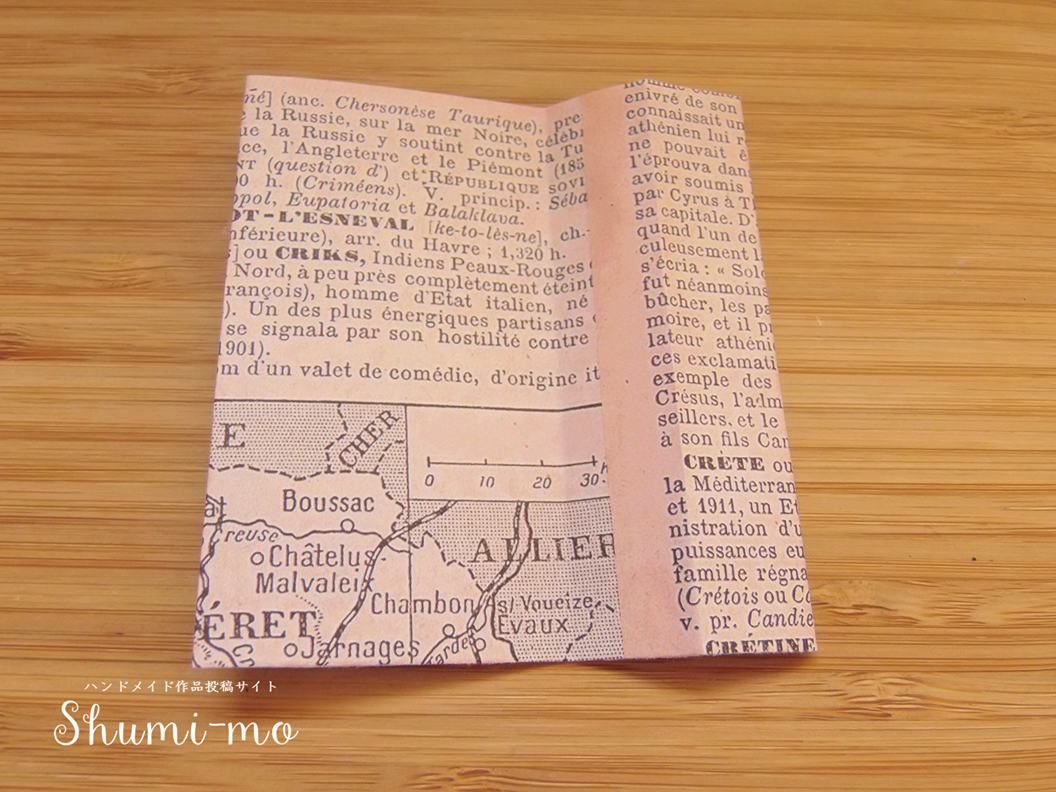 né] (anc. Chersonèse Taurique), pre
la Russie, sur la mer Noire, célèbr
ue la Russie y soutint contre la Tu
ce, l'Angleterre et le Piémont (185
NT (question d') et RÉPUBLIQUE SOVI
00 h. (Criméens). V. princip.: Séba
opol, Eupatoria et Balaklava.
OT-L'ESNEVAL [ke-to-lès-ne], ch.-
nférieure), arr. du Havre ; 1,320 h.
] ou CRIKS, Indiens Peaux-Rouges
Nord, à peu près complètement éteint
rançois), homme d'Etat italien, né
). Un des plus énergiques partisans
se signala par son hostilité contre
1901).
om d'un valet de comédie, d'origine it
E
CHER
0 10 20 30 K
Boussac
at
reuse
Châtelus-
Malvaleix
ALLIER
Chambon s/ Voueize
Evaux
ÉRET
Jarnages
Tardes
enivré de son
connaissait un
athénien lui r
ne pouvait ê
l'éprouva dan
avoir soumis
par Cyrus à T
sa capitale. D'
quand l'un de
culeusement l
s'écria : « Solo
fut néanmoins
bûcher, les pa
moire, et il pr
lateur athénie
ces exclamati
exemple des
Crésus, l'adm
seillers, et le
à son fils Cam
CRÈTE ou
la Méditerran
et 1911, un Et
nistration d'u
puissances eu
famille régna
(Crétois ou Ca
v. pr. Candie
CRÉTINE
ハンドメイド作品投稿サイト
Shumi-mo